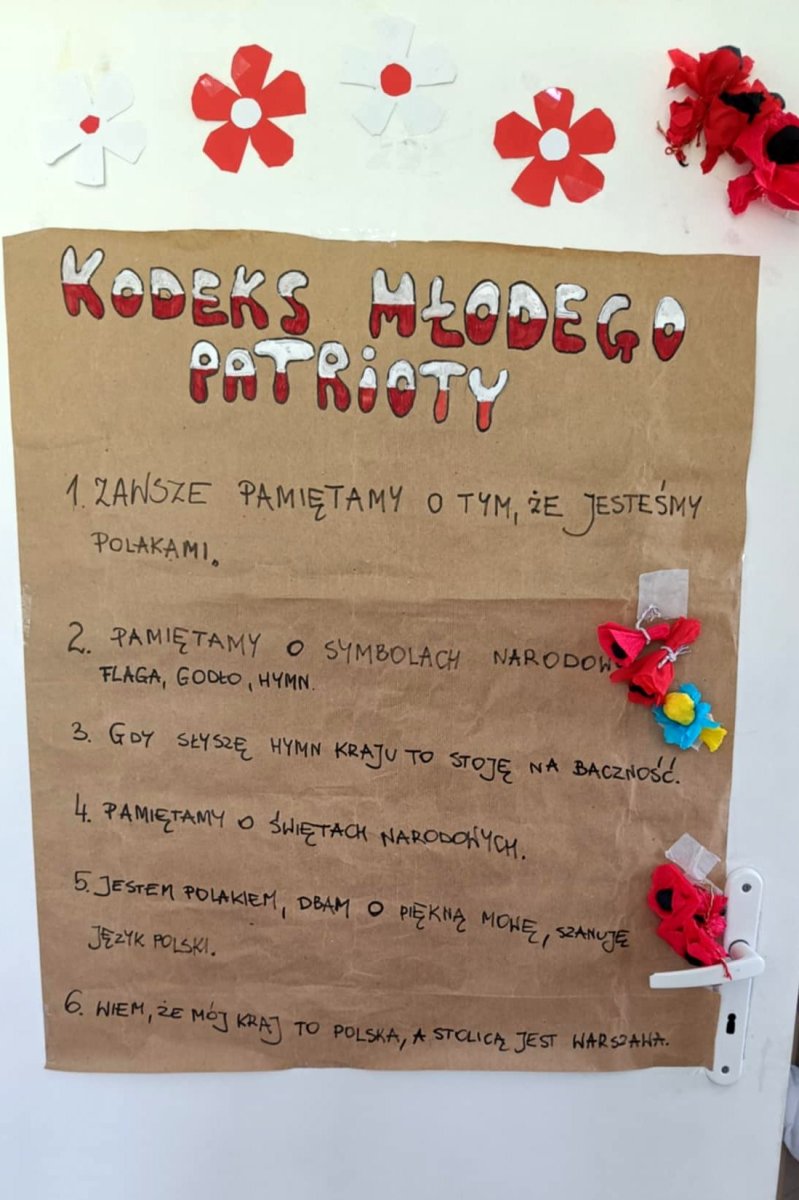 KODEKS MŁODEGO
PATRIOTY
1. ZAWSZE PAMIĘTAMY O TYM, ŻE JESTEŚMY
POLAKAMI.
2. PAMIĘTAMY O SYMBOLACH
FLAGA, GODŁO, HYMN.
3. GDY SŁYSZĘ HYMN KRAJU TO STOJĘ NA BACZNOŚĆ.
4. PAMIĘTAMY O ŚWIĘTACH NARODOWYCH.
5. JESTEM POLAKIEM, DBAM O PIĘKNĄ MOWĘ, SZANUJĘ
JĘZYK POLSKI.
6. WIEM, ŻE MÓJ KRAJ TO POLSKA, A STOLICĄ JEST WARSZAWA.